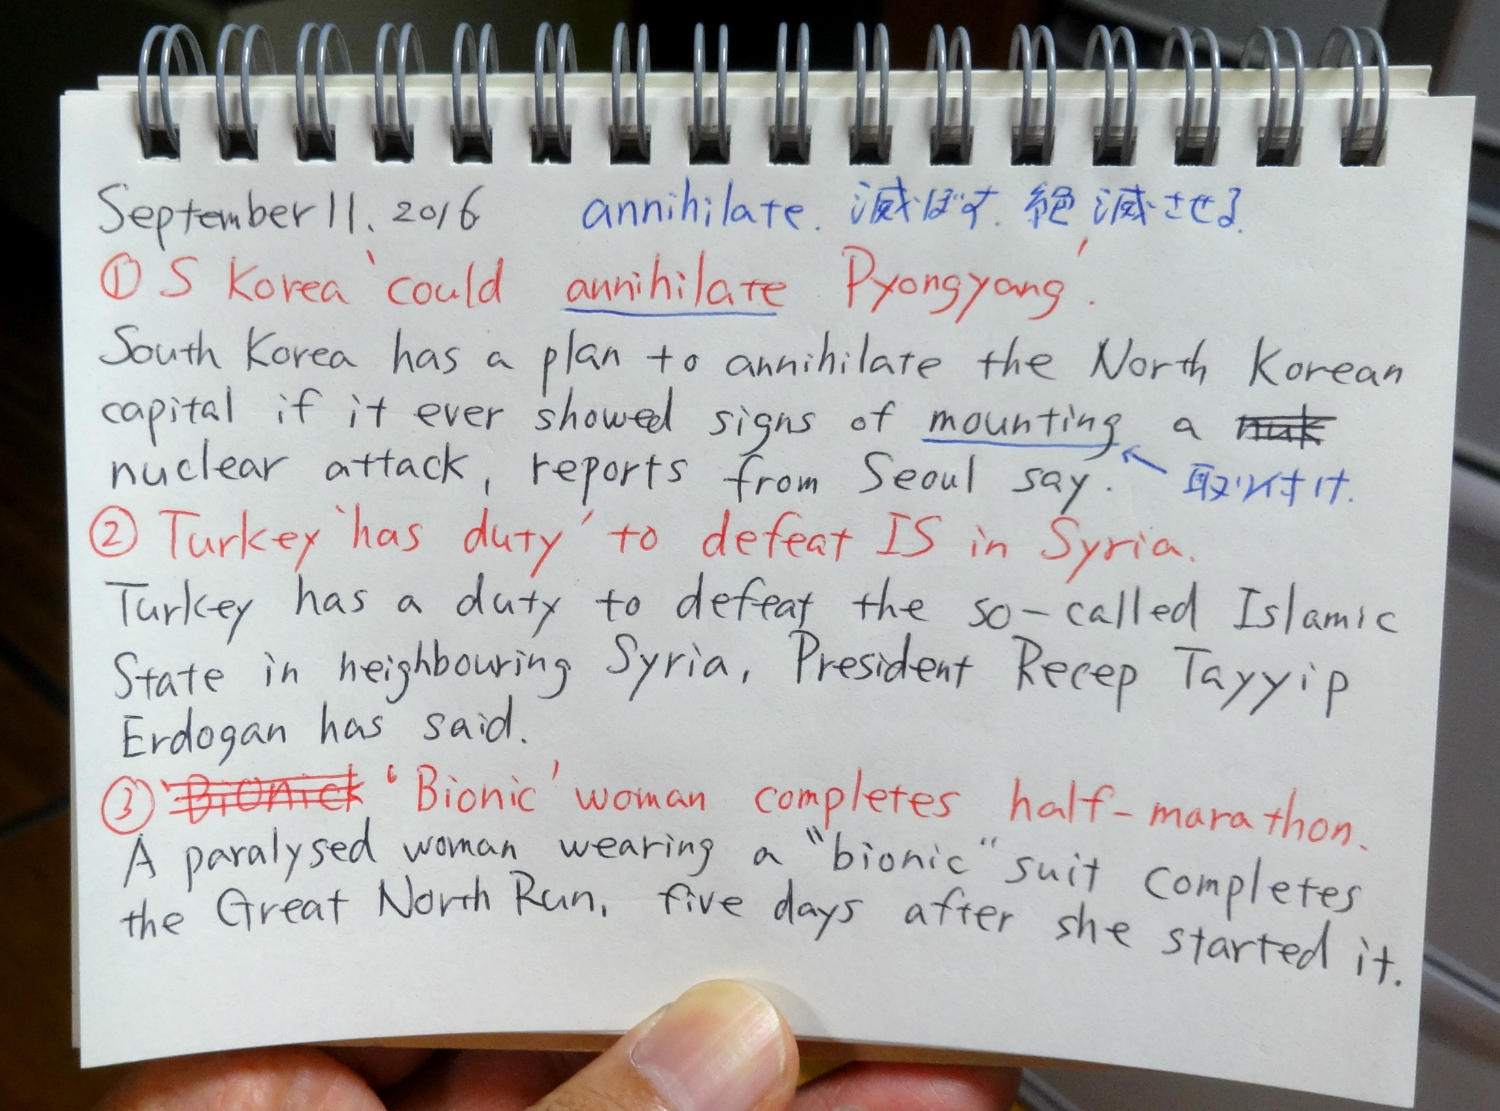 September 11. 2016 annihilate. 滅ぼす. 絶滅させる.
① S Korea 'could annihilate Pyongyang'.
South Korea has a plan to annihilate the North Korean
capital if it ever showed signs of mounting a
nuclear attack, reports from Seoul say. 取り付け.
② Turkey 'has duty' to defeat IS in Syria.
Turkey has a duty to defeat the so-called Islamic
State in neighbouring Syria, President Recep Tayyip
Erdogan has said.
③ 'Bionick 'Bionic' woman completes half-marathon.
A paralysed woman wearing a "bionic" suit completes
the Great North Run, five days after she started it.